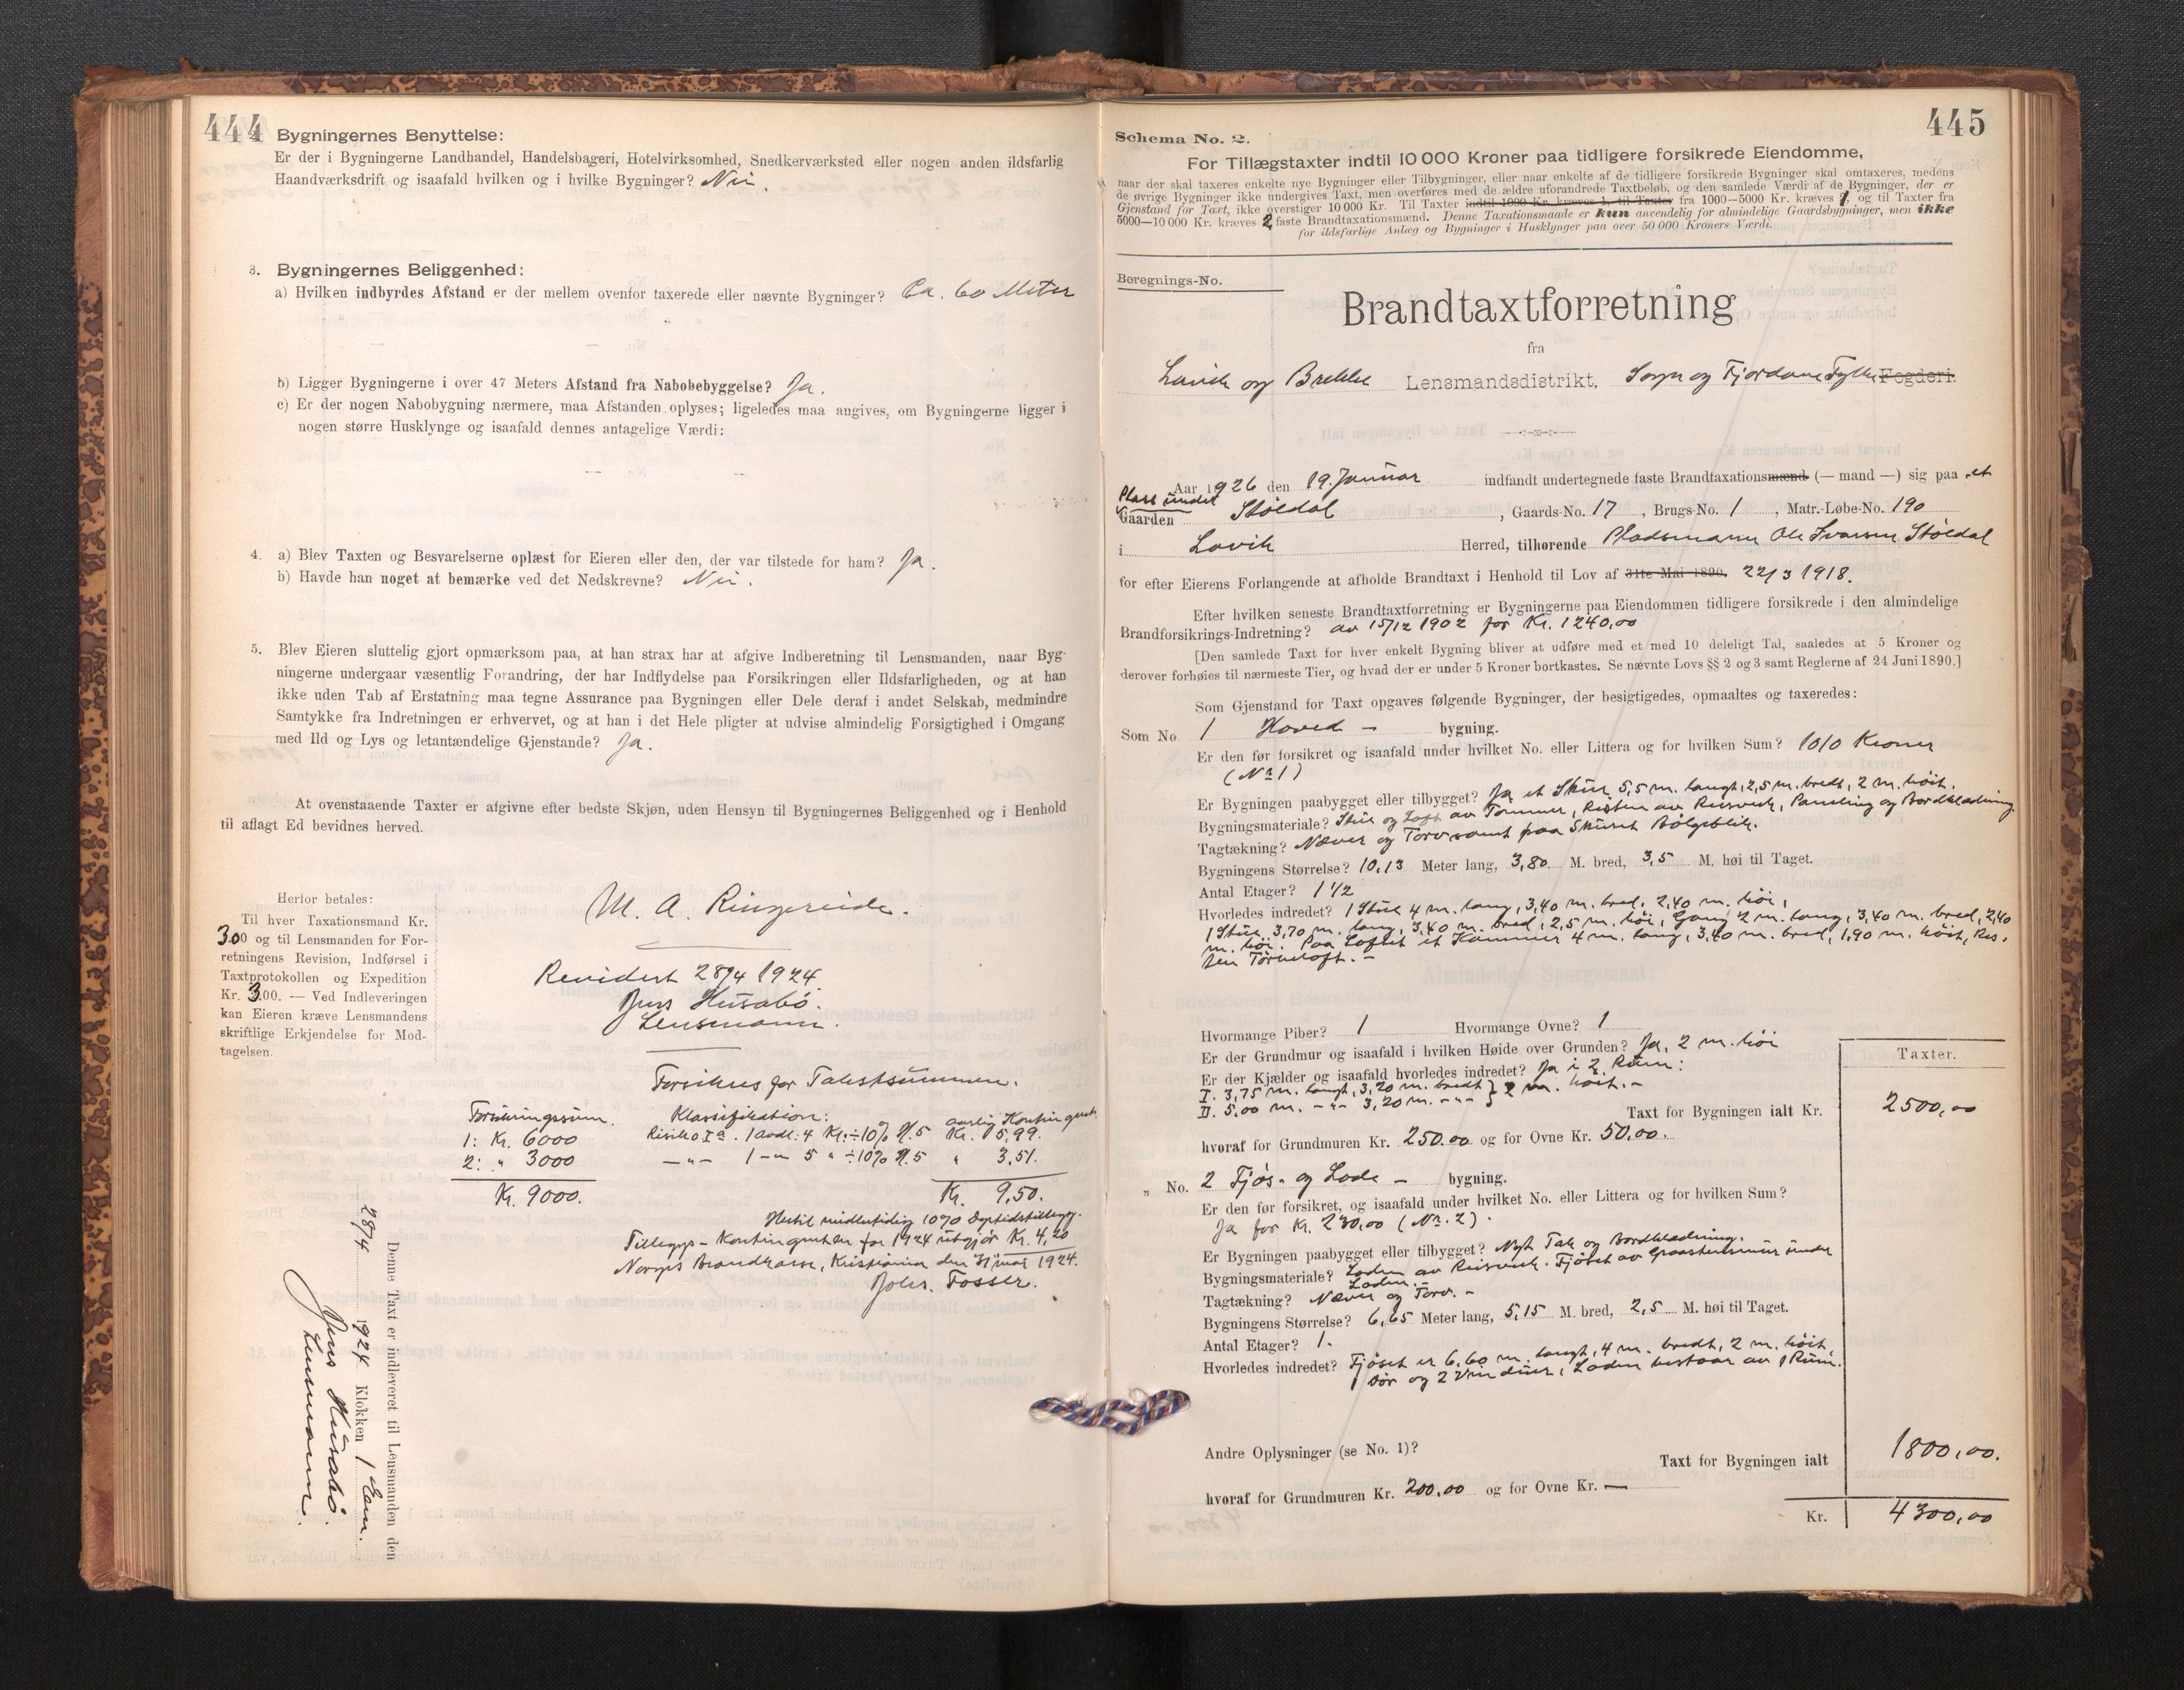 444
Bygningernes Benyttelse:
Er der i Bygningerne Landhandel, Handelsbageri, Hotelvirksomhed, Snedkerværksted eller nogen anden ildsfarlig
Haandværksdrift og isaafald hvilken og i hvilke Bygninger? Nei.
3. Bygningernes Beliggenhed:
a) Hvilken indbyrdes Afstand er der mellem ovenfor taxerede eller nævnte Bygninger? Ca. 60 Meter
b) Ligger Bygningerne i over 47 Meters Afstand fra Nabobebyggelse? Ja.
c) Er der nogen Nabobygning nærmere, maa Afstanden oplyses; ligeledes maa angives, om Bygningerne ligger i
nogen større Husklynge og isaafald dennes antagelige Værdi:
4. a) Blev Taxten og Besvarelserne oplæst for Eieren eller den, der var tilstede for ham? Ja.
b) Havde han noget at bemærke ved det Nedskrevne? Nei.
5. Blev Eieren sluttelig gjort opmærksom paa, at han strax har at afgive Indberetning til Lensmanden, naar Byg-
ningerne undergaar væsentlig Forandring, der har Indflydelse paa Forsikringen eller Ildsfarligheden, og at han
ikke uden Tab af Erstatning maa tegne Assurance paa Bygningen eller Dele deraf i andet Selskab, medmindre
Samtykke fra Indretningen er erhvervet, og at han i det Hele pligter at udvise almindelig Forsigtighed i Omgang
med Ild og Lys og letantændelige Gjenstande? Ja.
At ovenstaaende Taxter er afgivne efter bedste Skjøn, uden Hensyn til Bygningernes Beliggenhed og i Henhold
til aflagt Ed bevidnes herved.
Herfor betales:
Til hver Taxationsmand Kr.
3.00 og til Lensmanden for For-
retningens Revision, Indførsel i
Taxtprotokollen og Expedition
Kr. 3.00. — Ved Indleveringen
kan Eieren kræve Lensmandens
skriftlige Erkjendelse for Mod-
tagelsen.
M. A. Ringereide.
Revidert 28/4 1924.
Jens Husabö.
Lensmann.
Forsikres for Takstsummen.
Forsikringssum. Klassifikation: aarlig Kontingent.
1: Kr. 6000 Risiko Ia. 1 avdl: 4 Kr. ÷ 10% N.5 Kr. 5,99.
2: " 3000 —"— 1 —"— 5 " ÷ 10% N.5 " 3,51.
Kr. 9000. Kr. 9,50.
Hertil midlertidig 10% Dyrtidstillegg.
Tilleggs-Kontingenten for 1924 utgjør Kr. 4,20
Norges Brandkasse, Kristiania den 31 mai 1924.
Johs. Fosser.
Denne Taxt er indleveret til Lensmanden den
28/4 1924 Klokken 1 Em.
Jens Husabö.
Lensmann.
445
Schema No. 2.
For Tillægstaxter indtil 10 000 Kroner paa tidligere forsikrede Eiendomme,
naar der skal taxeres enkelte nye Bygninger eller Tilbygninger, eller naar enkelte af de tidligere forsikrede Bygninger skal omtaxeres, medens
de øvrige Bygninger ikke undergives Taxt, men overføres med de ældre uforandrede Taxtbeløb, og den samlede Værdi af de Bygninger, der er
Gjenstand for Taxt, ikke overstiger 10 000 Kr. Til Taxter indtil 1000 Kr. kræves 1, til Taxter fra 1000—5000 Kr. kræves 1, og til Taxter fra
5000—10 000 Kr. kræves 2 faste Brandtaxationsmænd. Denne Taxationsmaade er kun anvendelig for almindelige Gaardsbygninger, men ikke
for ildsfarlige Anlæg og Bygninger i Husklynger paa over 50 000 Kroners Værdi.
Beregnings-No.
Brandtaxtforretning
fra
Lavik og Brekke Lensmandsdistrikt, Sogn og Fjordane Fylke Fogderi.
Aar 1926 den 19. Januar indfandt undertegnede faste Brandtaxationsmænd (— mand —) sig paa et
Plass under
Gaarden Stöldal, Gaards-No. 17, Brugs-No. 1, Matr.-Løbe-No. 190
i Lavik Herred, tilhørende Pladsmann Ole Ivarsen Stöldal
for efter Eierens Forlangende at afholde Brandtaxt i Henhold til Lov af 31te Mai 1890. 22/3 1918.
Efter hvilken seneste Brandtaxtforretning er Bygningerne paa Eiendommen tidligere forsikrede i den almindelige
Brandforsikrings-Indretning? av 15/12 1902 for Kr. 1240,00
[Den samlede Taxt for hver enkelt Bygning bliver at udføre med et med 10 deleligt Tal, saaledes at 5 Kroner og
derover forhøies til nærmeste Tier, og hvad der er under 5 Kroner bortkastes. Se nævnte Lovs §§ 2 og 3 samt Reglerne af 24 Juni 1890.]
Som Gjenstand for Taxt opgaves følgende Bygninger, der besigtigedes, opmaaltes og taxeredes:
Som No. 1 Hoved- bygning.
Er den før forsikret og isaafald under hvilket No. eller Littera og for hvilken Sum? 1010 Kroner
(No 1)
Er Bygningen paabygget eller tilbygget? Ja et Skur 5,5 m. langt, 2,5 m. bredt, 2 m. höit.
Bygningsmateriale? Stue og Loft av Tömmer, Resten av Reisverk, Paneling og Bordklædning.
Tagtækning? Næver og Torv samt paa Skuret Bölgeblik.
Bygningens Størrelse? 10,13 Meter lang, 3,80 M. bred, 3,5 M. høi til Taget.
Antal Etager? 1 1/2
Hvorledes indredet? 1 Stue 4 m. lang, 3,40 m. bred, 2,40 m. höi,
1 Stue 3,70 m. lang, 3,40 m. bred, 2,5 m. höi, Gang 2 m. lang, 3,40 m. bred, 2,40
m. höi. Paa Loftet et Kammer 4 m. lang, 3,40 m. bred, 1,90 m. höit, Res-
ten Törreloft. –
Hvormange Piber? 1 Hvormange Ovne? 1
Er der Grundmur og isaafald i hvilken Høide over Grunden? Ja, 2 m. höi
Er der Kjælder og isaafald hvorledes indredet? Ja i 2 Rum:
I. 3,75 m. langt, 3,20 m. bredt } 2 m. höit. –
II. 5,00 m. –"– 3,20 m. –"– }
Taxter.
Taxt for Bygningen ialt Kr. 2500,00
hvoraf for Grundmuren Kr. 250.00 og for Ovne Kr. 50,00.
" No. 2 Fjös- og Lade- bygning.
Er den før forsikret, og isaafald under hvilket No. eller Littera og for hvilken Sum?
Ja for Kr. 230,00 (No. 2).
Er Bygningen paabygget eller tilbygget? Nyt Tak og Bordklædning.
Bygningsmateriale? Laden av Reisverk. Fjöset av Graastensmur under
Laden. –
Tagtækning? Næver og Torv. –
Bygningens Størrelse? 6,65 Meter lang, 5,15 M. bred, 2,5 M. høi til Taget.
Antal Etager? 1.
Hvorledes indredet? Fjöset er 6,60 m. langt, 4 m. bredt, 2 m. höit,
1 Dör og 2 Vinduer, Laden bestaar av 1 Rum.
Andre Oplysninger (se No. 1)?
Taxt for Bygningen ialt 1800,00.
hvoraf for Grundmuren Kr. 200,00 og for Ovne Kr. —
Kr. 4300,00